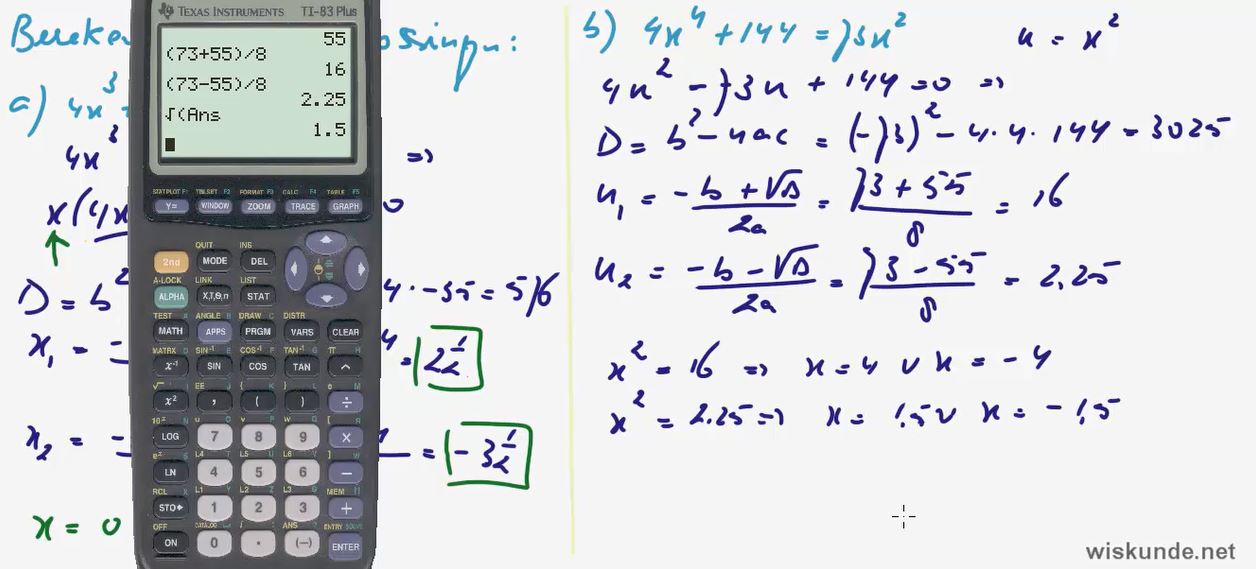 Bereke ossingen:
a) 4x³
4x³ =>
x(4x 0
D = b² 4 · -35 = 576
x₁ = = 2½
x₂ = - = -3½
x = 0
TEXAS INSTRUMENTS TI-83 Plus
55
(73+55)/8
16
(73-55)/8
2.25
√(Ans
1.5
STATPLOT F1 TBLSET F2 FORMAT F3 CALC F4 TABLE F5
Y= WINDOW ZOOM TRACE GRAPH
QUIT INS
2nd MODE DEL
A-LOCK LINK LIST
ALPHA X,T,θ,n STAT
TEST A ANGLE B DRAW C DISTR
MATH APPS PRGM VARS CLEAR
MATRX D SIN⁻¹ E COS⁻¹ F TAN⁻¹ G π H
x⁻¹ SIN COS TAN ^
√ I EE J { K } L e M
x² , ( ) ÷
10ˣ N u O v P w Q [ R
LOG 7 8 9 ×
eˣ S L4 T L5 U L6 V ] W
LN 4 5 6 −
RCL X L1 Y L2 Z L3 θ MEM "
STO▸ 1 2 3 +
OFF CATALOG i ANS ? ENTRY SOLVE
ON 0 . (−) ENTER
b) 4x⁴ + 144 = 73x² u = x²
4u² - 73u + 144 = 0 =>
D = b² - 4ac = (-73)² - 4·4·144 = 3025
u₁ = (-b + √D)/2a = (73 + 55)/8 = 16
u₂ = (-b - √D)/2a = (73 - 55)/8 = 2.25
x² = 16 => x = 4 v x = -4
x² = 2.25 => x = 1.5 v x = -1.5
wiskunde.net